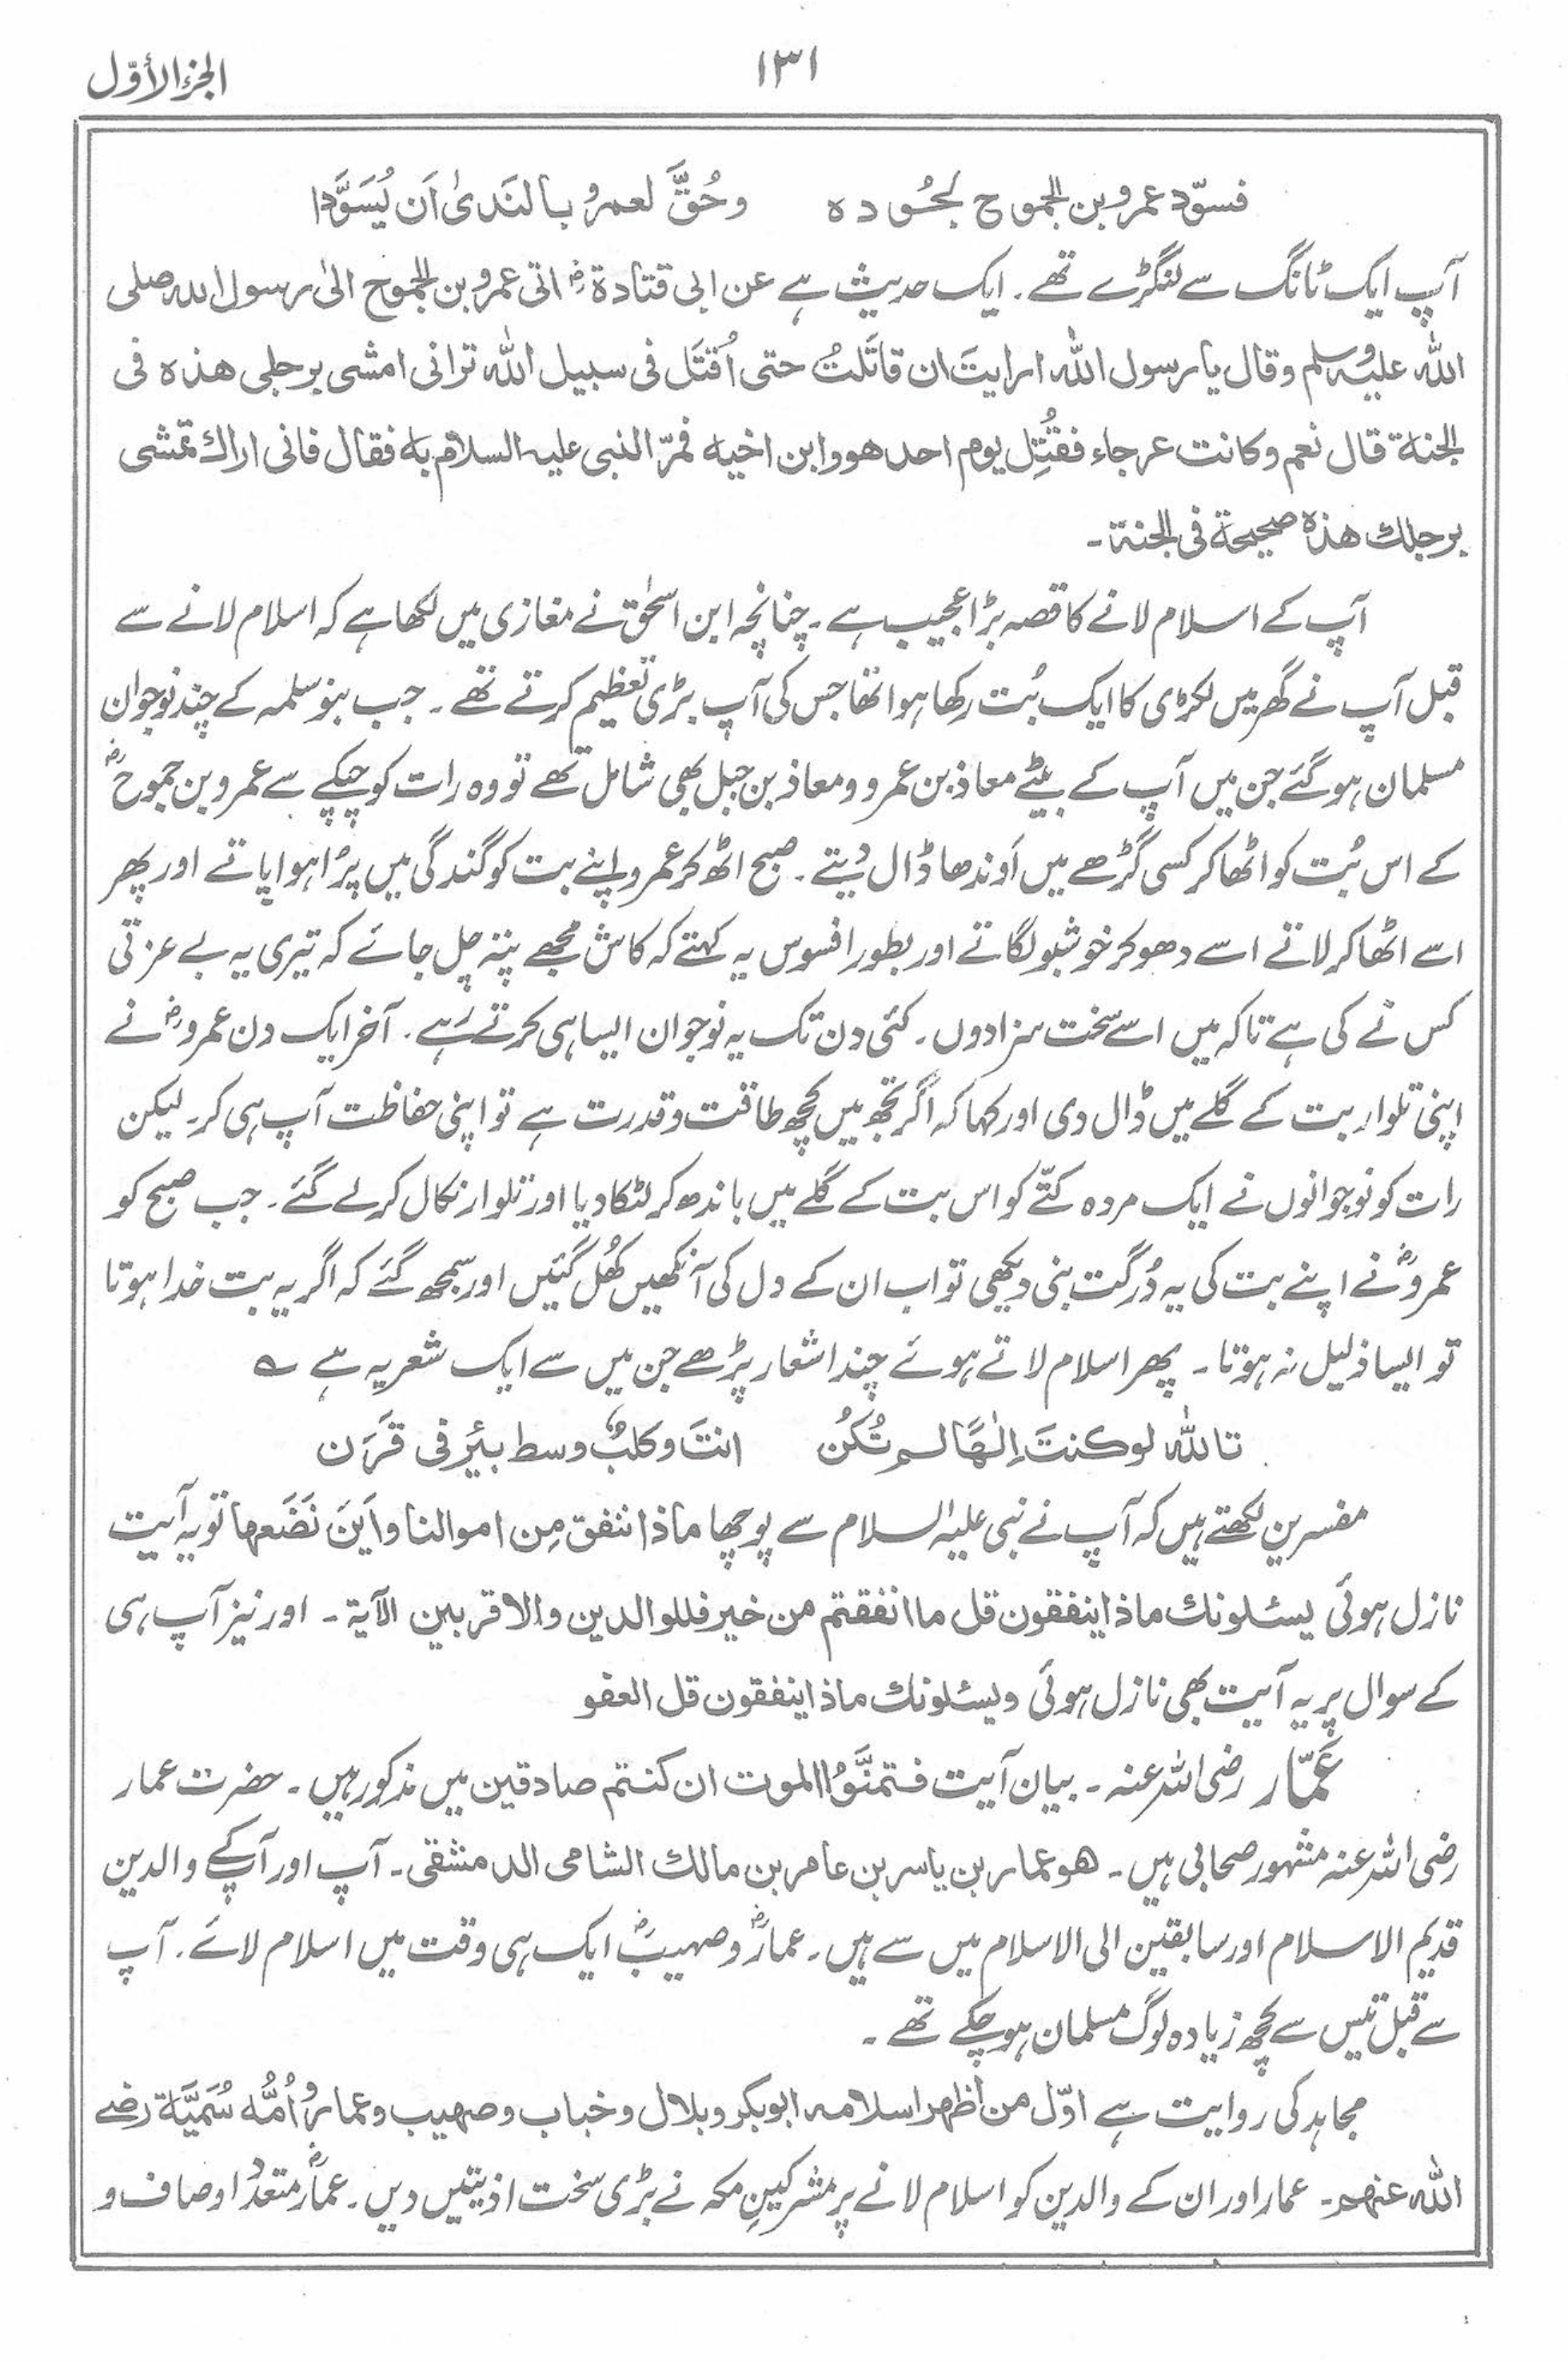 الجزء الأوّل
۱۳۱
فسوّد عمرو بن الجموح لجُوده وحُقَّ لعمرو بالنَدیٰ اَن یُسَوَّدا
آپ ایک ٹانگ سے لنگڑے تھے۔ ایک حدیث ہے عن ابی قتادۃؓ اتی عمرو بن الجموح الیٰ رسول اللہ صلی
اللہ علیہ وسلم وقال یا رسول اللہ ارایتَ ان قاتَلتُ حتی اُقتَل فی سبیل اللہ ترانی امشی برجلی ھذہ فی
الجنۃ قال نعم وکانت عرجاء فقُتِل یوم احد ھو وابن اخیہ فمرّ النبی علیہ السلام بہ فقال فانی اراك تمشی
برجلك ھذہ صحیحۃ فی الجنۃ۔
آپ کے اسلام لانے کا قصہ بڑا عجیب ہے۔ چنانچہ ابن اسحٰق نے مغازی میں لکھا ہے کہ اسلام لانے سے
قبل آپ نے گھر میں لکڑی کا ایک بُت رکھا ہوا تھا جس کی آپ بڑی تعظیم کرتے تھے۔ جب بنو سلمہ کے چند نوجوان
مسلمان ہوگئے جن میں آپ کے بیٹے معاذ بن عمرو و معاذ بن جبل بھی شامل تھے تو وہ رات کو چپکے سے عمرو بن جموحؓ
کے اس بُت کو اٹھا کر کسی گڑھے میں اَوندھا ڈال دیتے۔ صبح اٹھ کر عمرو اپنے بت کو گندگی میں پڑا ہوا پاتے اور پھر
اسے اٹھا کر لاتے اسے دھو کر خوشبو لگاتے اور بطور افسوس یہ کہتے کہ کاش مجھے پتہ چل جائے کہ تیری یہ بے عزتی
کس نے کی ہے تاکہ میں اسے سخت سزا دوں۔ کئی دن تک یہ نوجوان ایسا ہی کرتے رہے۔ آخر ایک دن عمروؓ نے
اپنی تلوار بت کے گلے میں ڈال دی اور کہا کہ اگر تجھ میں کچھ طاقت و قدرت ہے تو اپنی حفاظت آپ ہی کر۔ لیکن
رات کو نوجوانوں نے ایک مردہ کتّے کو اس بت کے گلے میں باندھ کر لٹکا دیا اور تلوار نکال کر لے گئے۔ جب صبح کو
عمروؓ نے اپنے بت کی یہ دُرگت بنی دیکھی تو اب ان کے دل کی آنکھیں کھُل گئیں اور سمجھ گئے کہ اگر یہ بت خدا ہوتا
تو ایسا ذلیل نہ ہوتا۔ پھر اسلام لاتے ہوئے چند اشعار پڑھے جن میں سے ایک شعر یہ ہے ؎
تاللہ لو کنتَ اِلٰھًا لم تُکن انتَ وکلبٌ وسط بئر فی قَرَن
مفسرین لکھتے ہیں کہ آپ نے نبی علیہ السلام سے پوچھا ماذا ننفق مِن اموالنا واَینَ نَضَعھا تو یہ آیت
نازل ہوئی یسئلونك ماذا ینفقون قل ما انفقتم من خیر فللوالدین والاقربین الآیۃ۔ اور نیز آپ ہی
کے سوال پر یہ آیت بھی نازل ہوئی ویسئلونك ماذا ینفقون قل العفو
عَمّار رضی اللہ عنہ۔ بیان آیت فتمنَّوُا الموت ان کنتم صادقین میں مذکور ہیں۔ حضرت عمار
رضی اللہ عنہ مشہور صحابی ہیں۔ ھو عمار بن یاسر بن عامر بن مالك الشامی الدمشقی۔ آپ اور آپکے والدین
قدیم الاسلام اور سابقین الی الاسلام میں سے ہیں۔ عمارؓ و صہیبؓ ایک ہی وقت میں اسلام لائے۔ آپ
سے قبل تیس سے کچھ زیادہ لوگ مسلمان ہوچکے تھے۔
مجاہد کی روایت ہے اوّل من اَظھر اسلامہ ابوبکر وبلال وخباب وصھیب وعمار واُمُّہ سُمَیَّۃ رضی
اللہ عنھم۔ عمار اور ان کے والدین کو اسلام لانے پر مشرکینِ مکہ نے بڑی سخت اذیتیں دیں۔ عمارؓ متعدد اوصاف و